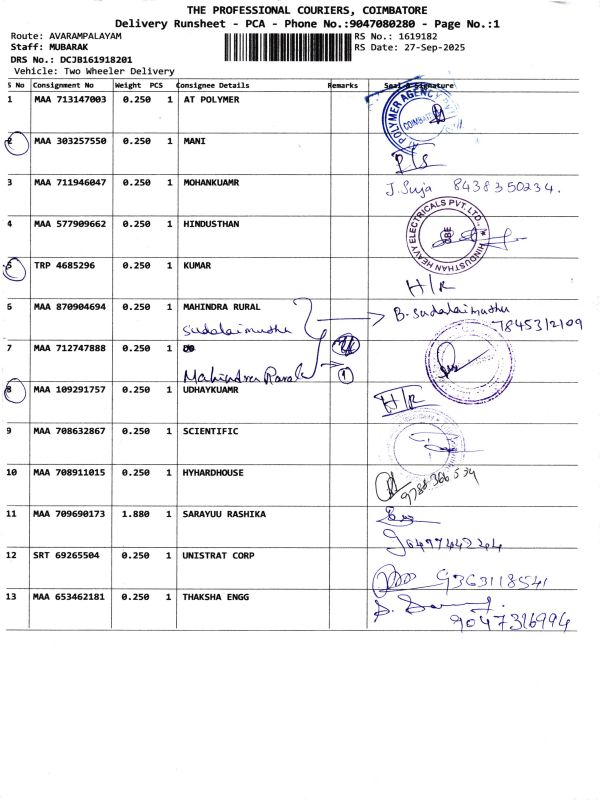 THE PROFESSIONAL COURIERS, COIMBATORE
Delivery Runsheet - PCA - Phone No.:9047080280 - Page No.:1
Route: AVARAMPALAYAM RS No.: 1619182
Staff: MUBARAK RS Date: 27-Sep-2025
DRS No.: DCJB161918201
Vehicle: Two Wheeler Delivery
S No Consignment No Weight PCS Consignee Details Remarks Seal & Signature
1 MAA 713147003 0.250 1 AT POLYMER POLYMER AGENCY
2 MAA 303257550 0.250 1 MANI
3 MAA 711946047 0.250 1 MOHANKUAMR J. Suja 8438350234.
4 MAA 577909662 0.250 1 HINDUSTHAN HINDUSTHAN HEAVY ELECTRICALS PVT. LTD.,
5 TRP 4685296 0.250 1 KUMAR H/R
6 MAA 870904694 0.250 1 MAHINDRA RURAL B. Sudalaimuthu
Sudalaimuthu 7845312109
7 MAA 712747888 0.250 1
Mahindra Rural 1
8 MAA 109291757 0.250 1 UDHAYKUAMR H/R
9 MAA 708632867 0.250 1 SCIENTIFIC
10 MAA 708911015 0.250 1 HYHARDHOUSE
11 MAA 709690173 1.880 1 SARAYUU RASHIKA
12 SRT 69265504 0.250 1 UNISTRAT CORP 9363118541
13 MAA 653462181 0.250 1 THAKSHA ENGG
9047316994